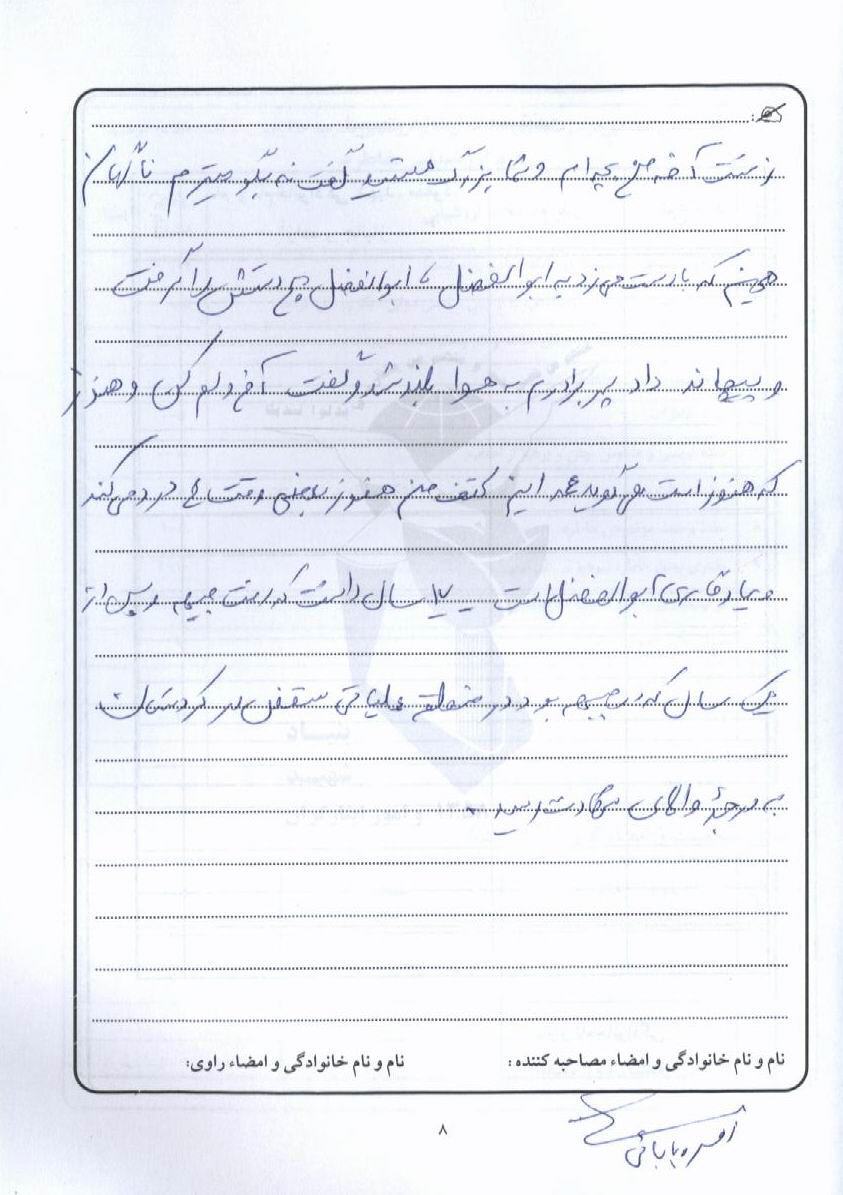 زشت آخه من بچه ام و شما بزرگ هستید گفت نه بگو میترم ناگهان
همینم که با دست می زد به ابوالفضل، ابوالفضل مچ دستش را گرفت
و پیچاند داد پسر برادرم به هوا بلند شد و گفت آخ ولم کن و هنوز
که هنوز است می گوید عمه این کتف من هنوز بعضی وقت ها درد می کند
و یادگاری ابوالفضل است - ۱۷ سال داشت که رفت جبهه و پس از
یک سال که در جبهه بود در منطقه عملیاتی سقز در کردستان
به درجۀ والای شهادت رسید.
نام و نام خانوادگی و امضاء مصاحبه کننده: نام و نام خانوادگی و امضاء راوی:
۸
بابائی